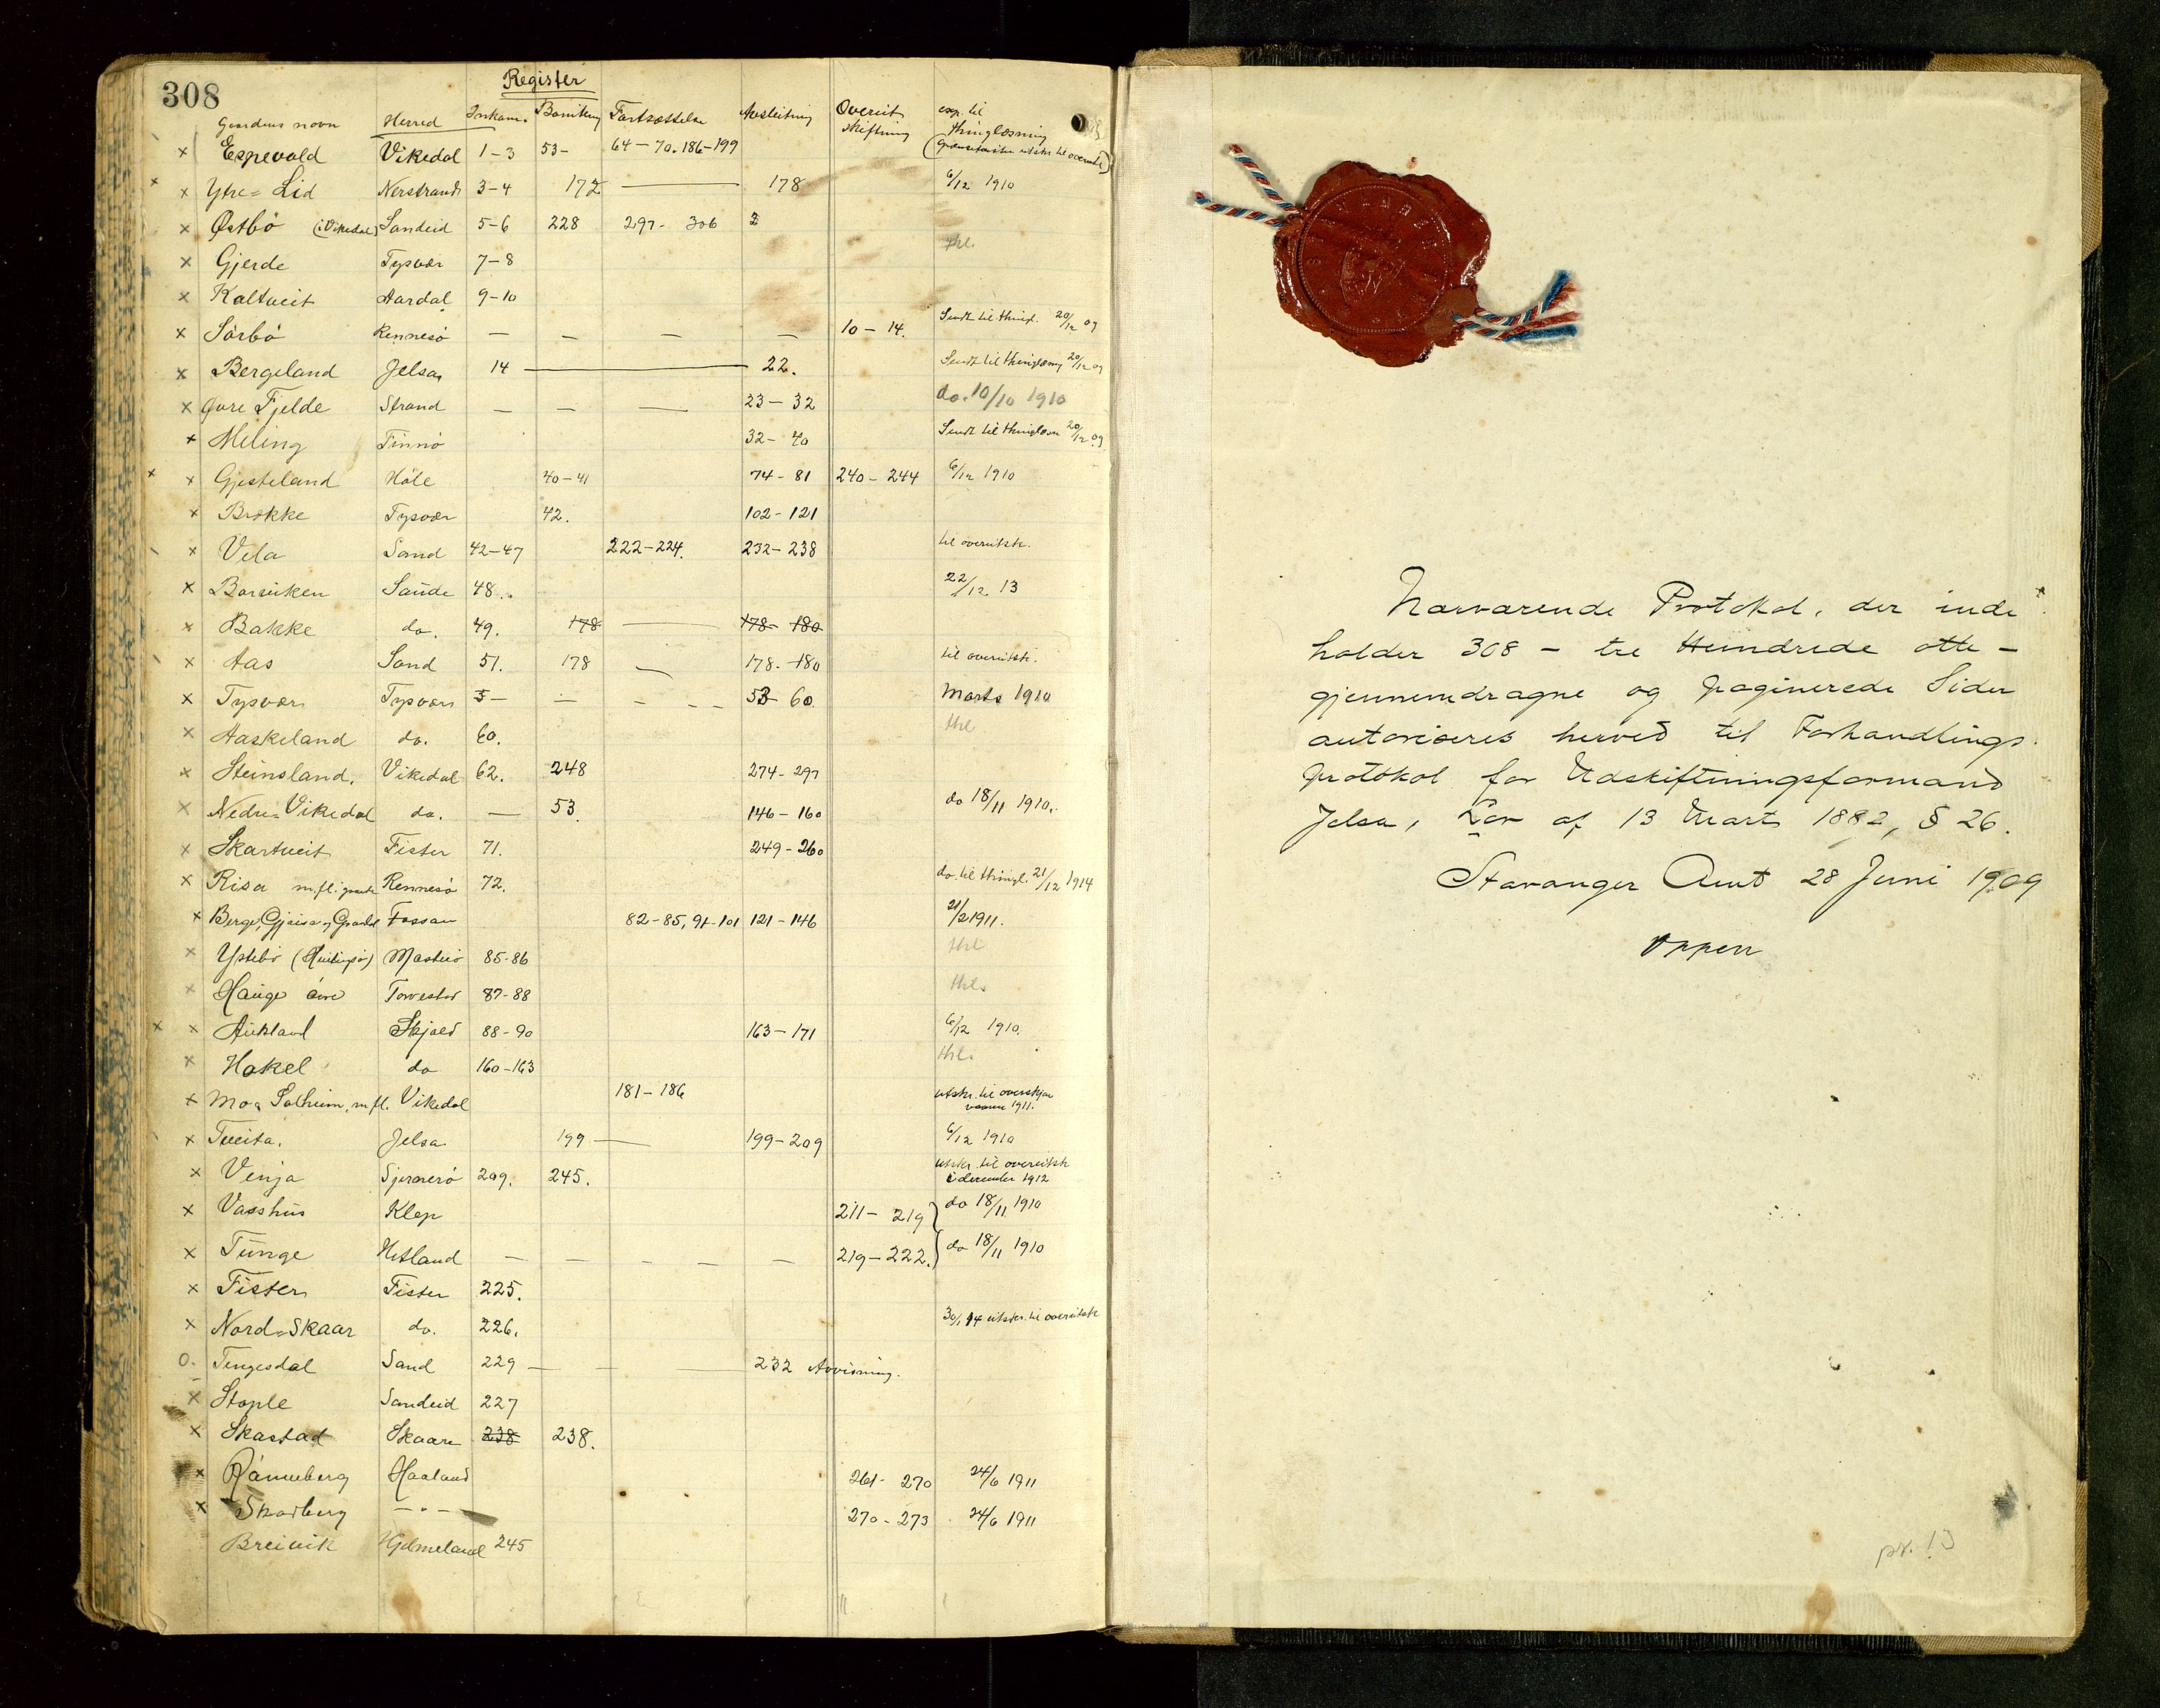 308
Register
Gaardens navn Herred Inkam. Bonitering Fortsættelse Avslutning Overut skiftning exp. til thinglæsning
× Espevold Vikedal 1-3 53- 64-70. 186-199
× Ytre=Lid Nerstrand 3-4 172 — 178 6/12 1910
× Østbø (Vikedal) Sandeid 5-6 228 297- 306
× Gjerde Tysvær 7-8 thl.
× Kaltveit Aardal 9-10
× Sørbø Rennesø — — — — 10-14. Sendt til thingl. 20/12 09
× Bergeland Jelsa 14 — 22. Sendt til thinglæsning 20/12 09
× Øvre Fjelde Strand — — — 23-32 do. 10/10 1910
× Meling Finnø 32-40 Sendt til thinglæsn 20/12 09
× Gjesteland Høle 40-41 74-81 240-244 6/12 1910
× Brække Tysvær 42. 102-121
× Vela Sand 42-47 222-224. 232-238 til overutsk.
× Barviken Saude 48. 22/12 13
× Bakke do. 49. 178 — 178-180
× Aas Sand 51. 178 — 178-180 til overutsk.
× Tysvær Tysvær 5- — - -- 53-60. Marts 1910
× Haskeland do. 60. thl
× Steinsland. Vikedal 62. 248 274-297
× Nedre=Vikedal do. — 53. 146-160 do 18/11 1910.
× Skartveit Fister 71. 249-260
× Risa m.fl. Rennesø 72. do. til thingl. 21/12 1914
× Berge, Fossan 82-85, 91-101 121-146 21/2 1911.
× Ystebø Mastrø 85-86 thl
× Hauge øvre Torvestad 87-88 thl.
× Aukland Skjold 88-90 163-171 6/12 1910.
× Hakel do 160-163 thl.
× Mo Solheim, m.fl. Vikedal 181-186 utskr. til overskjøn
1911.
× Tveita. Jelsa 199 — 199-209 6/12 1910
× Venja Sjernerø 209. 245. utskr. til overutsk
i december 1912
× Vasshus Klep 211-219 do 18/11 1910
× Tunge Hetland — — - — — 219-222. do 18/11 1910
× Fister Fister 225.
× Nord=Skaar do. 226. 30/1 14 utskr. til overutsk
0. Tengesdal Sand 229 — — — 232 Avvisning.
× Stople Sandeid 227
× Skastad Skaare 238 238.
× Rånneberg Haaland 261-270 24/6 1911
× Skadberg —"— 270-273 24/6 1911
Breivik Hjelmeland 245
Nærværende Protokol, der inde
holder 308 - tre Hundrede otte -
gjennemdragne og paginerede Sider
autoriseres herved til Forhandlings-
protokol for Udskiftningsformand
Jelsa, Lov af 13 Marts 1882, § 26.
Stavanger Amt 28 Juni 1909
Oppen